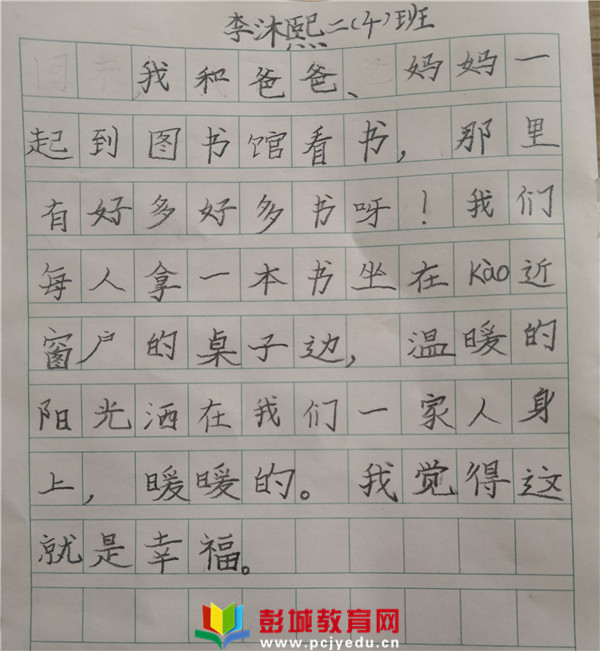 李沐熙二(4)班
我和爸爸、妈妈一
起到图书馆看书，那里
有好多好多书呀！我们
每人拿一本书坐在kào近
窗户的桌子边，温暖的
阳光洒在我们一家人身
上，暖暖的。我觉得这
就是幸福。
彭城教育网
www.pcjyedu.cn